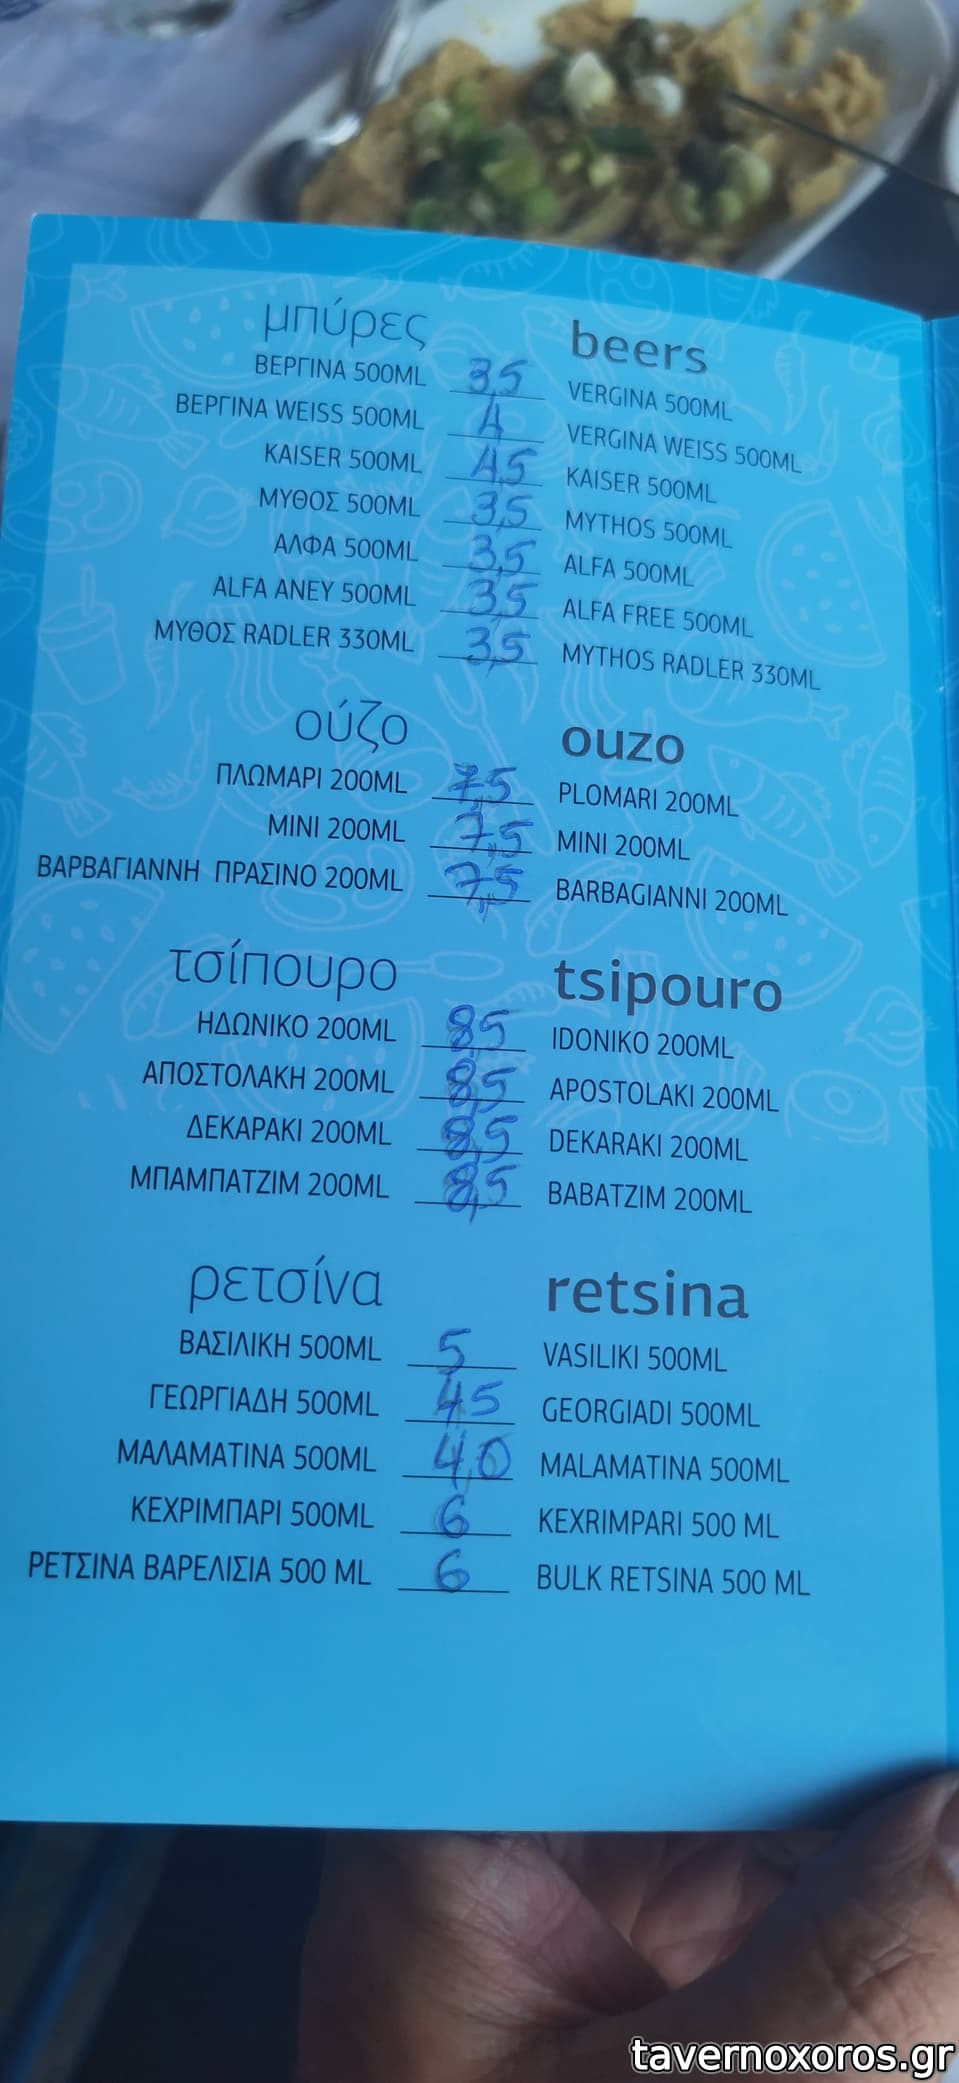 μπύρες beers
ΒΕΡΓΙΝΑ 500ML 3,5 VERGINA 500ML
ΒΕΡΓΙΝΑ WEISS 500ML 4 VERGINA WEISS 500ML
KAISER 500ML 4,5 KAISER 500ML
ΜΥΘΟΣ 500ML 3,5 MYTHOS 500ML
ΑΛΦΑ 500ML 3,5 ALFA 500ML
ALFA ANEY 500ML 3,5 ALFA FREE 500ML
ΜΥΘΟΣ RADLER 330ML 3,5 MYTHOS RADLER 330ML
ούζο ouzo
ΠΛΩΜΑΡΙ 200ML 7,5 PLOMARI 200ML
ΜΙΝΙ 200ML 7,5 MINI 200ML
ΒΑΡΒΑΓΙΑΝΝΗ ΠΡΑΣΙΝΟ 200ML 7,5 BARBAGIANNI 200ML
τσίπουρο tsipouro
ΗΔΩΝΙΚΟ 200ML 8,5 IDONIKO 200ML
ΑΠΟΣΤΟΛΑΚΗ 200ML 8,5 APOSTOLAKI 200ML
ΔΕΚΑΡΑΚΙ 200ML 8,5 DEKARAKI 200ML
ΜΠΑΜΠΑΤΖΙΜ 200ML 8,5 BABATZIM 200ML
ρετσίνα retsina
ΒΑΣΙΛΙΚΗ 500ML 5 VASILIKI 500ML
ΓΕΩΡΓΙΑΔΗ 500ML 4,5 GEORGIADI 500ML
ΜΑΛΑΜΑΤΙΝΑ 500ML 4,0 MALAMATINA 500ML
ΚΕΧΡΙΜΠΑΡΙ 500ML 6 KEXRIMPARI 500 ML
ΡΕΤΣΙΝΑ ΒΑΡΕΛΙΣΙΑ 500 ML 6 BULK RETSINA 500 ML
tavernoxoros.gr